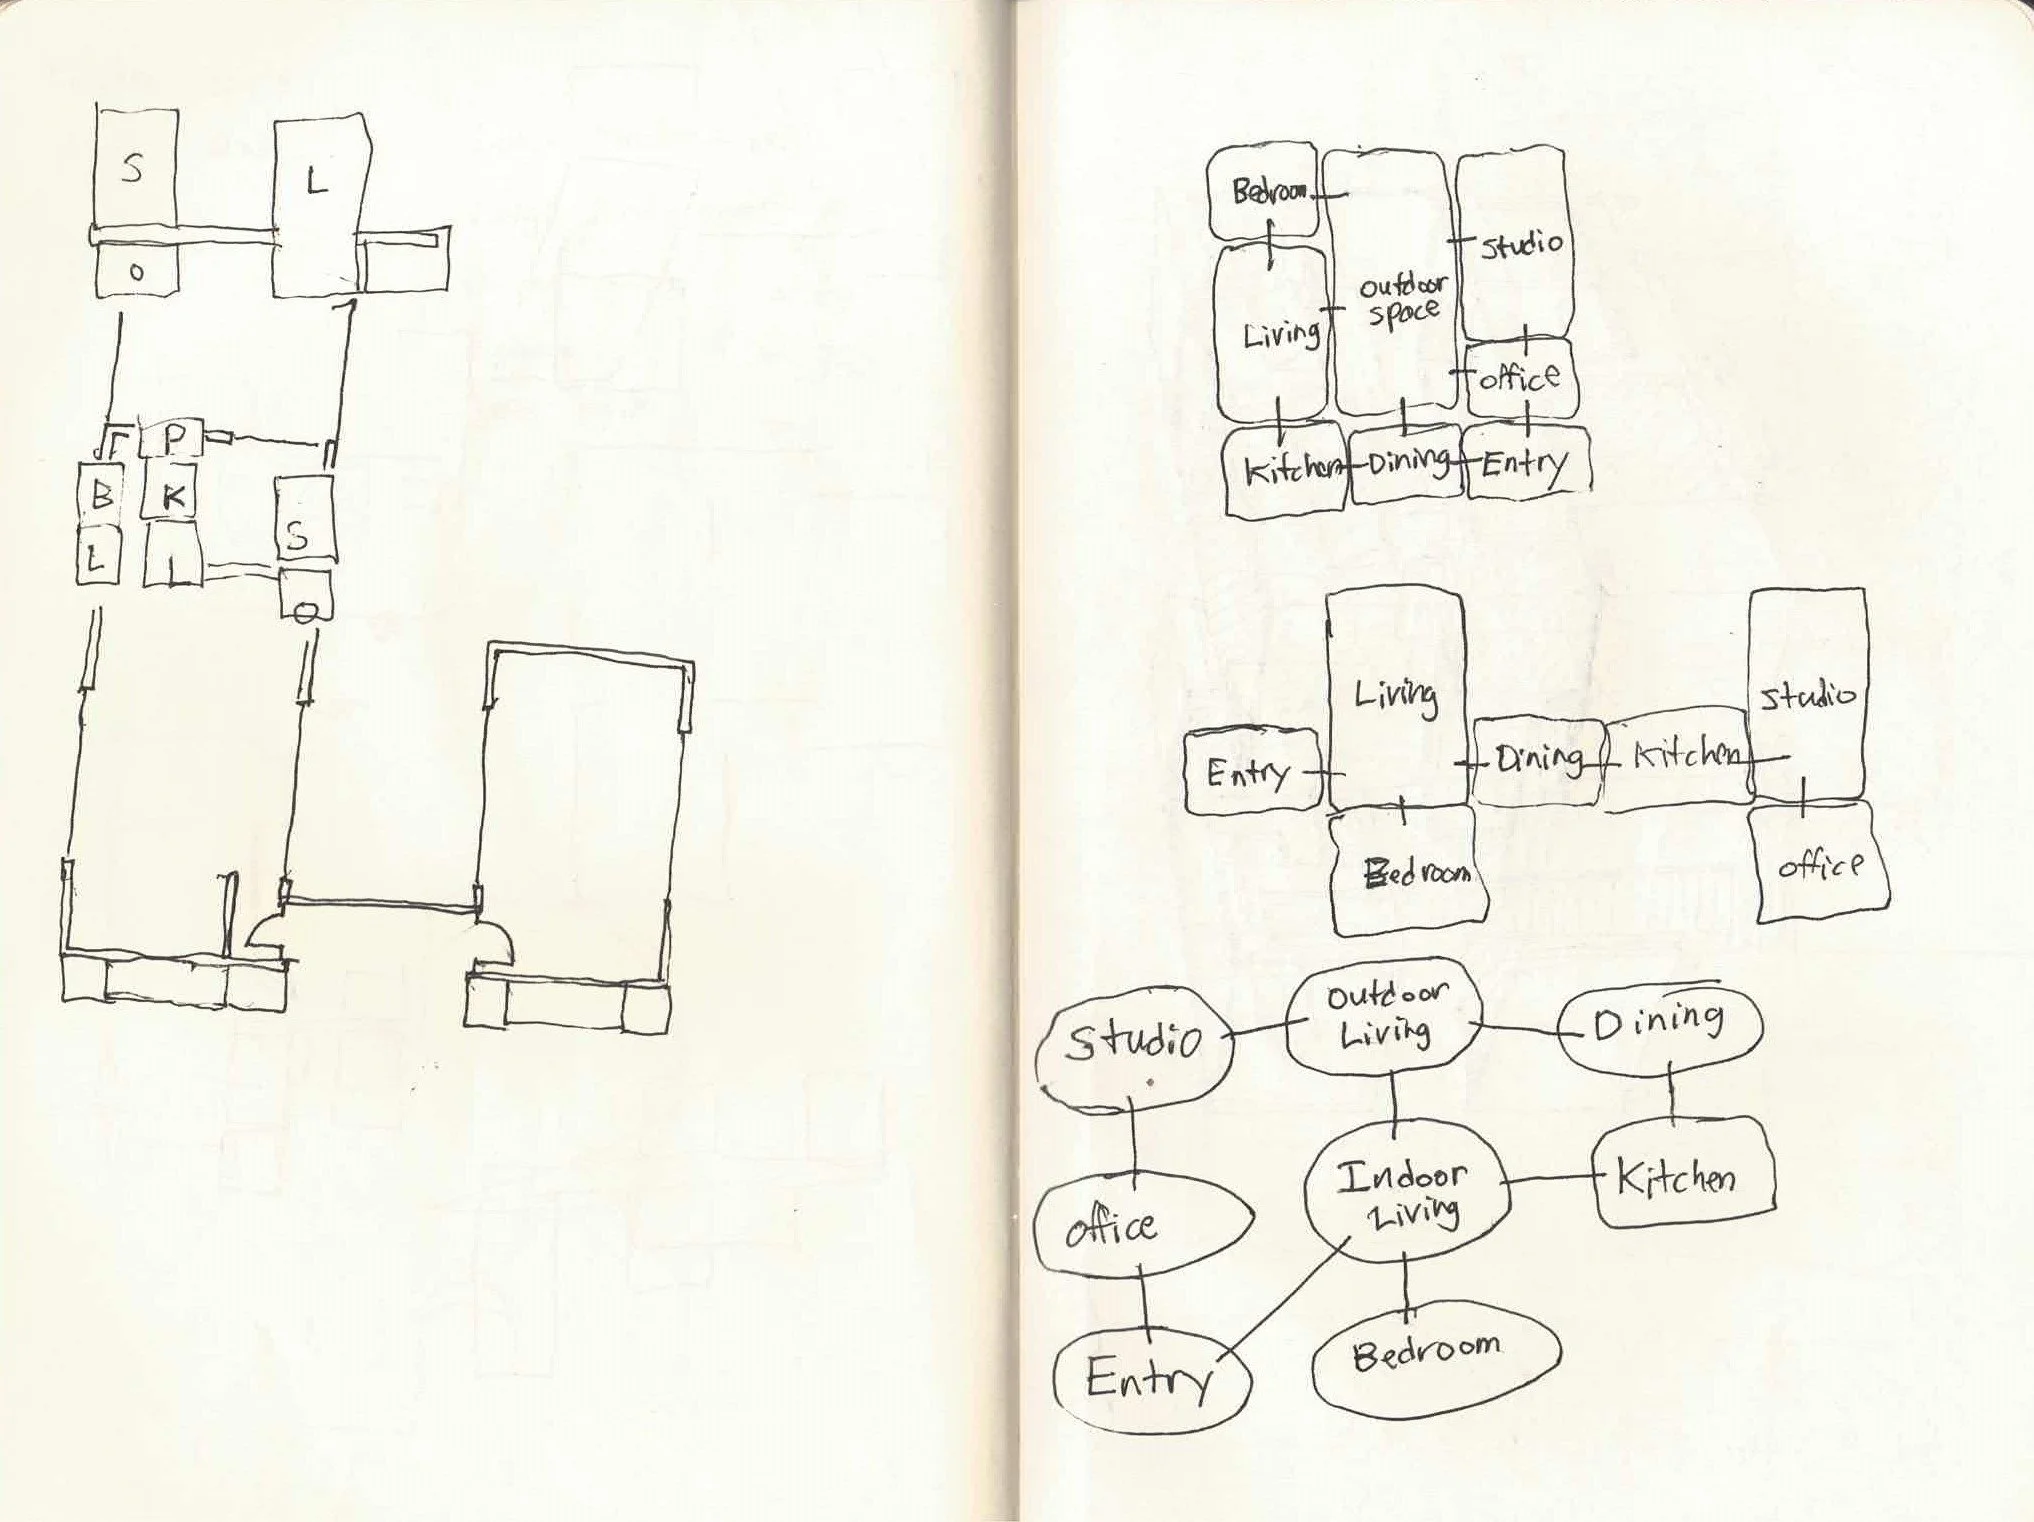 S
L
O
P
B
K
L
L
S
O
Bedroom
Studio
Outdoor
Space
Living
Office
Kitchen
Dining
Entry
Living
Studio
Entry
Dining
Kitchen
Bedroom
Office
Studio
Outdoor
Living
Dining
Office
Indoor
Living
Kitchen
Entry
Bedroom